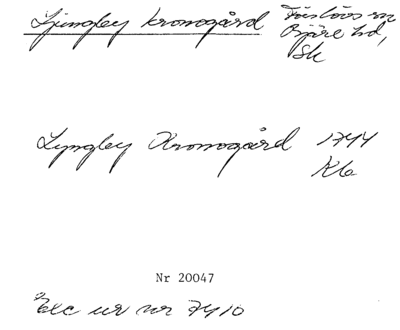 Ljungley kronogård Förslövs sn
Bjäre hd,
Sk
Lyngley Kronogård 1744
Kb
Nr 20047
Exc ur nr 7410